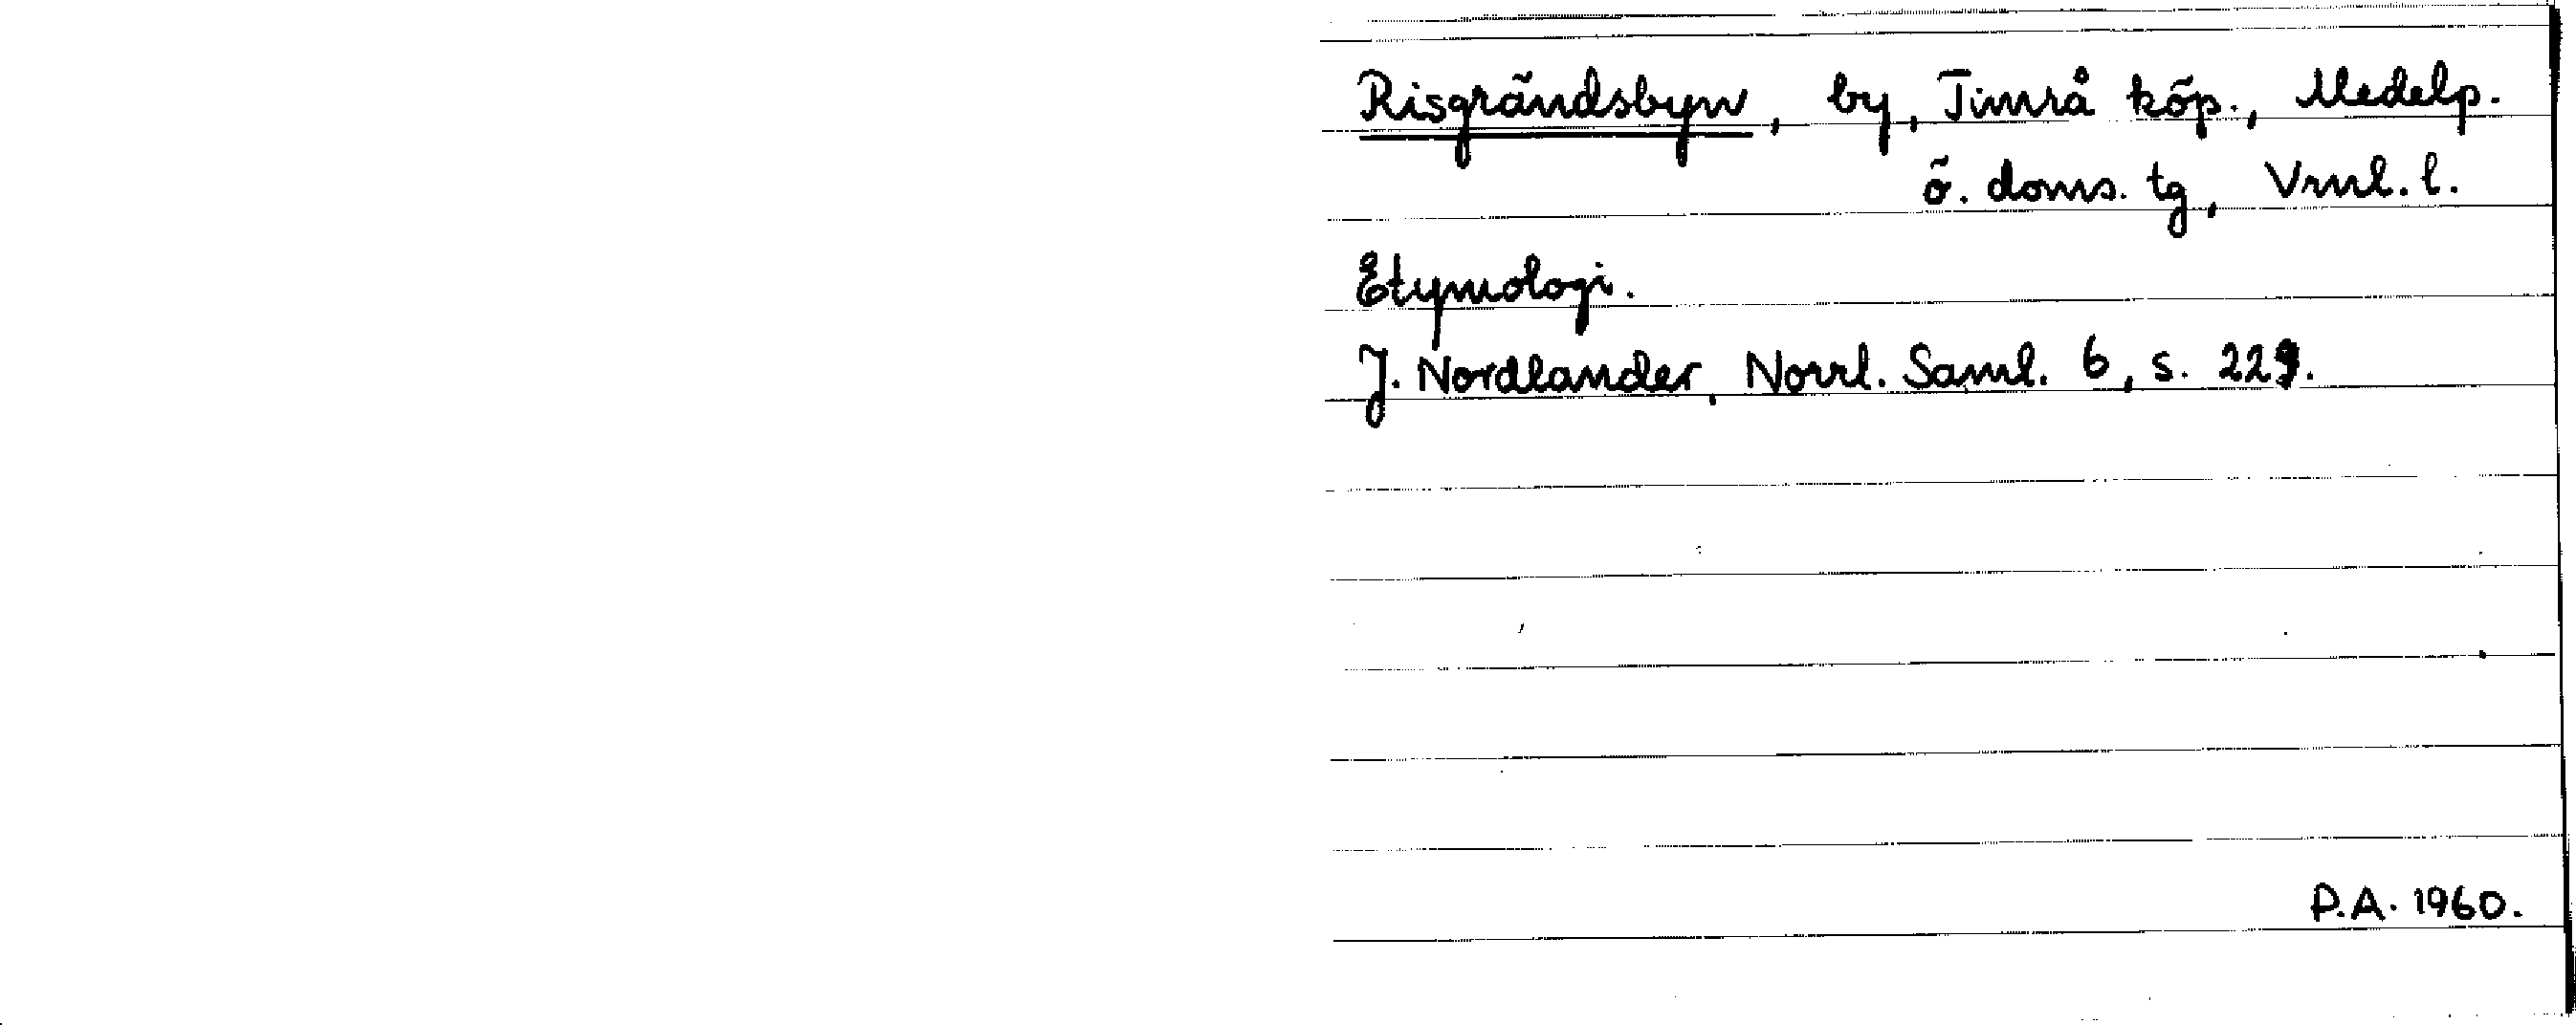 Risgrändsbyn, by, Timrå köp., Medelp.
ö. doms. tg, Vrnl. l.
Etymologi.
J. Nordlander, Norrl. Saml. 6, s. 229.
P.A. 1960.